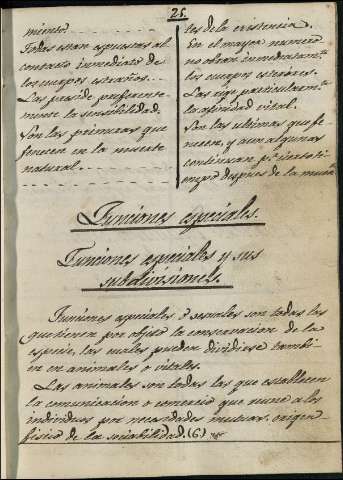 25.
miento
Todas estan expuestas al
contacto inmediato de
los cuerpos estraños.
Las preside preferente-
mente la sensibilidad.
Son las primeras que
fenecen en la muerte
natural.
tes de la existencia.
En el mayor numero
no obran inmediatam.te
los cuerpos esteriores.
Las rige particularm.te
la afinidad vital.
Son las ultimas que fe-
necen, y aun algunas
continuan p.r cierto ti-
empo despues de la muer
Funciones especiales.
Funciones especiales y sus
subdivisiones.
Funciones especiales ó sexuales son todas las
que tienen por objeto la conservacion de la
especie, las cuales pueden dividirse tambi-
en en animales o vitales.
Las animales son todas las que establecen
la comunicacion o comercio que aune a los
individuos por necesidades mutuas, origen
fisico de la sociabilidad. (6)